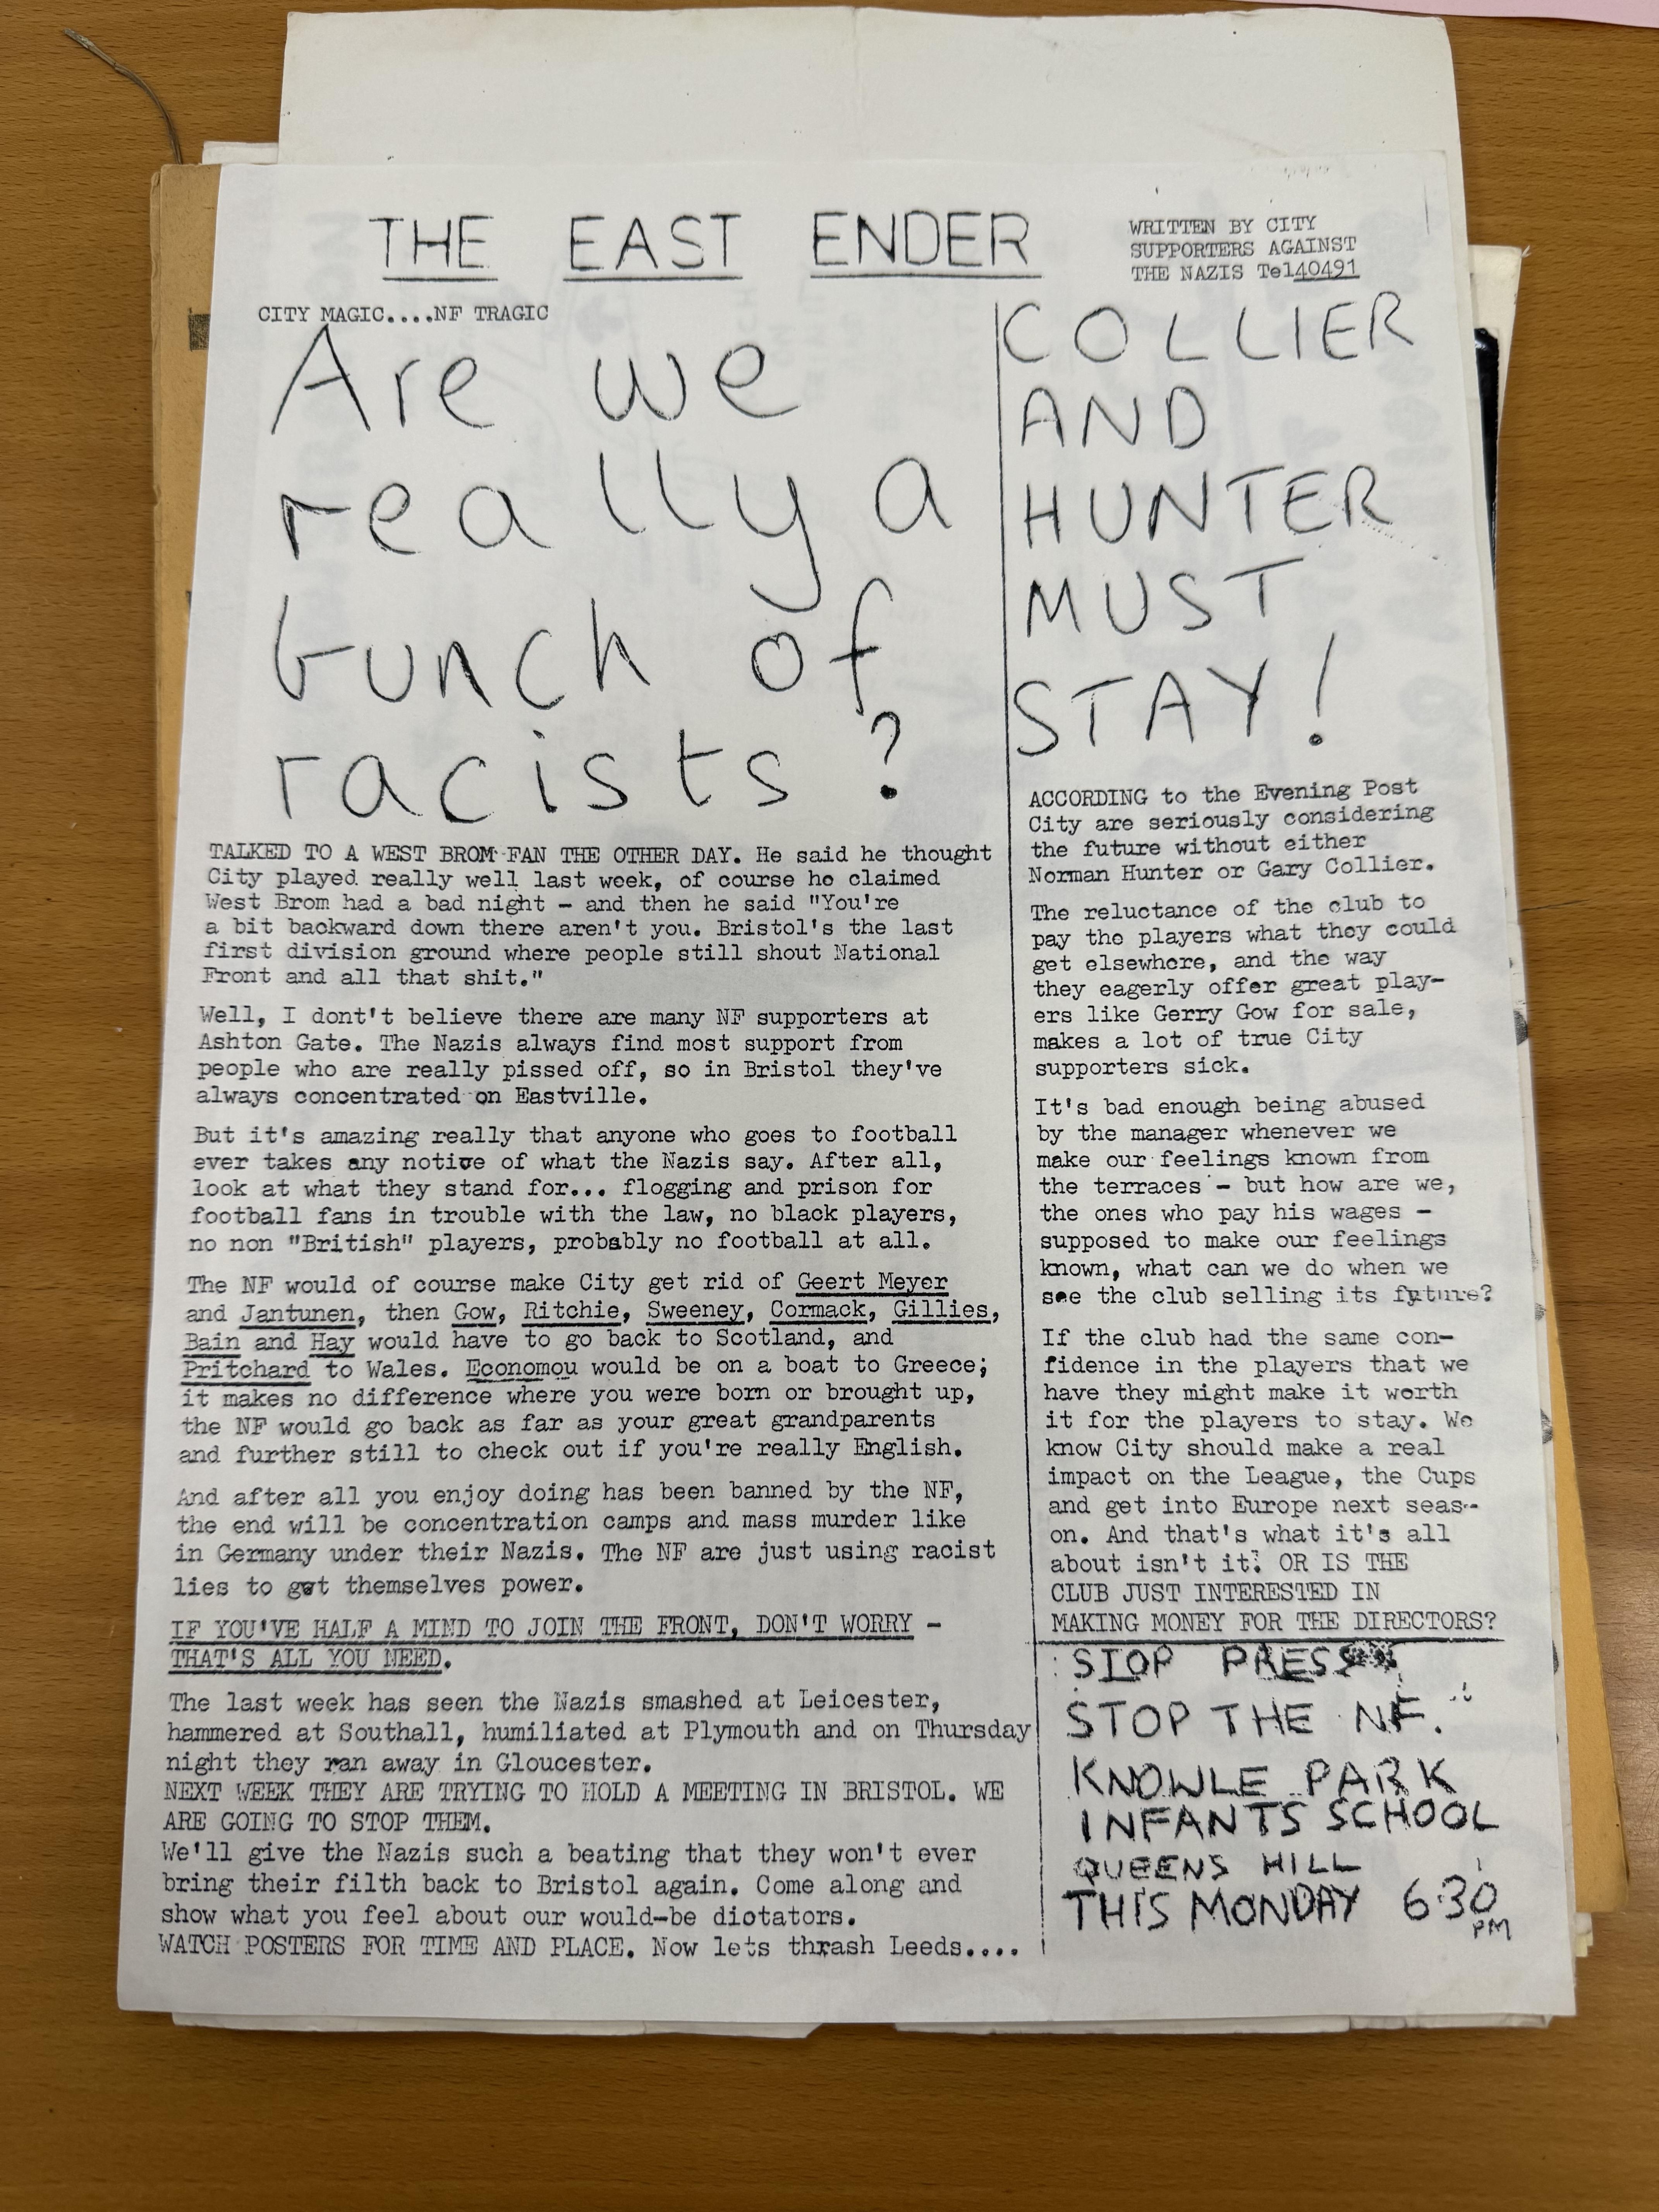 THE EAST ENDER
WRITTEN BY CITY
SUPPORTERS AGAINST
THE NAZIS Tel40491
CITY MAGIC....NF TRAGIC
Are we
really a
bunch of
racists?
TALKED TO A WEST BROM FAN THE OTHER DAY. He said he thought
City played really well last week, of course he claimed
West Brom had a bad night - and then he said "You're
a bit backward down there aren't you. Bristol's the last
first division ground where people still shout National
Front and all that shit."
Well, I dont't believe there are many NF supporters at
Ashton Gate. The Nazis always find most support from
people who are really pissed off, so in Bristol they've
always concentrated on Eastville.
But it's amazing really that anyone who goes to football
ever takes any notice of what the Nazis say. After all,
look at what they stand for... flogging and prison for
football fans in trouble with the law, no black players,
no non "British" players, probably no football at all.
The NF would of course make City get rid of Geert Meyer
and Jantunen, then Gow, Ritchie, Sweeney, Cormack, Gillies,
Bain and Hay would have to go back to Scotland, and
Pritchard to Wales. Economou would be on a boat to Greece;
it makes no difference where you were born or brought up,
the NF would go back as far as your great grandparents
and further still to check out if you're really English.
And after all you enjoy doing has been banned by the NF,
the end will be concentration camps and mass murder like
in Germany under their Nazis. The NF are just using racist
lies to get themselves power.
IF YOU'VE HALF A MIND TO JOIN THE FRONT, DON'T WORRY -
THAT'S ALL YOU NEED.
The last week has seen the Nazis smashed at Leicester,
hammered at Southall, humiliated at Plymouth and on Thursday
night they ran away in Gloucester.
NEXT WEEK THEY ARE TRYING TO HOLD A MEETING IN BRISTOL. WE
ARE GOING TO STOP THEM.
We'll give the Nazis such a beating that they won't ever
bring their filth back to Bristol again. Come along and
show what you feel about our would-be dictators.
WATCH POSTERS FOR TIME AND PLACE. Now lets thrash Leeds....
COLLIER
AND
HUNTER
MUST
STAY!
ACCORDING to the Evening Post
City are seriously considering
the future without either
Norman Hunter or Gary Collier.
The reluctance of the club to
pay the players what they could
get elsewhere, and the way
they eagerly offer great play-
ers like Gerry Gow for sale,
makes a lot of true City
supporters sick.
It's bad enough being abused
by the manager whenever we
make our feelings known from
the terraces - but how are we,
the ones who pay his wages -
supposed to make our feelings
known, what can we do when we
see the club selling its future?
If the club had the same con-
fidence in the players that we
have they might make it worth
it for the players to stay. We
know City should make a real
impact on the League, the Cups
and get into Europe next seas-
on. And that's what it's all
about isn't it? OR IS THE
CLUB JUST INTERESTED IN
MAKING MONEY FOR THE DIRECTORS?
STOP PRESS
STOP THE NF.
KNOWLE PARK
INFANTS SCHOOL
QUEENS HILL
THIS MONDAY 6·30
PM